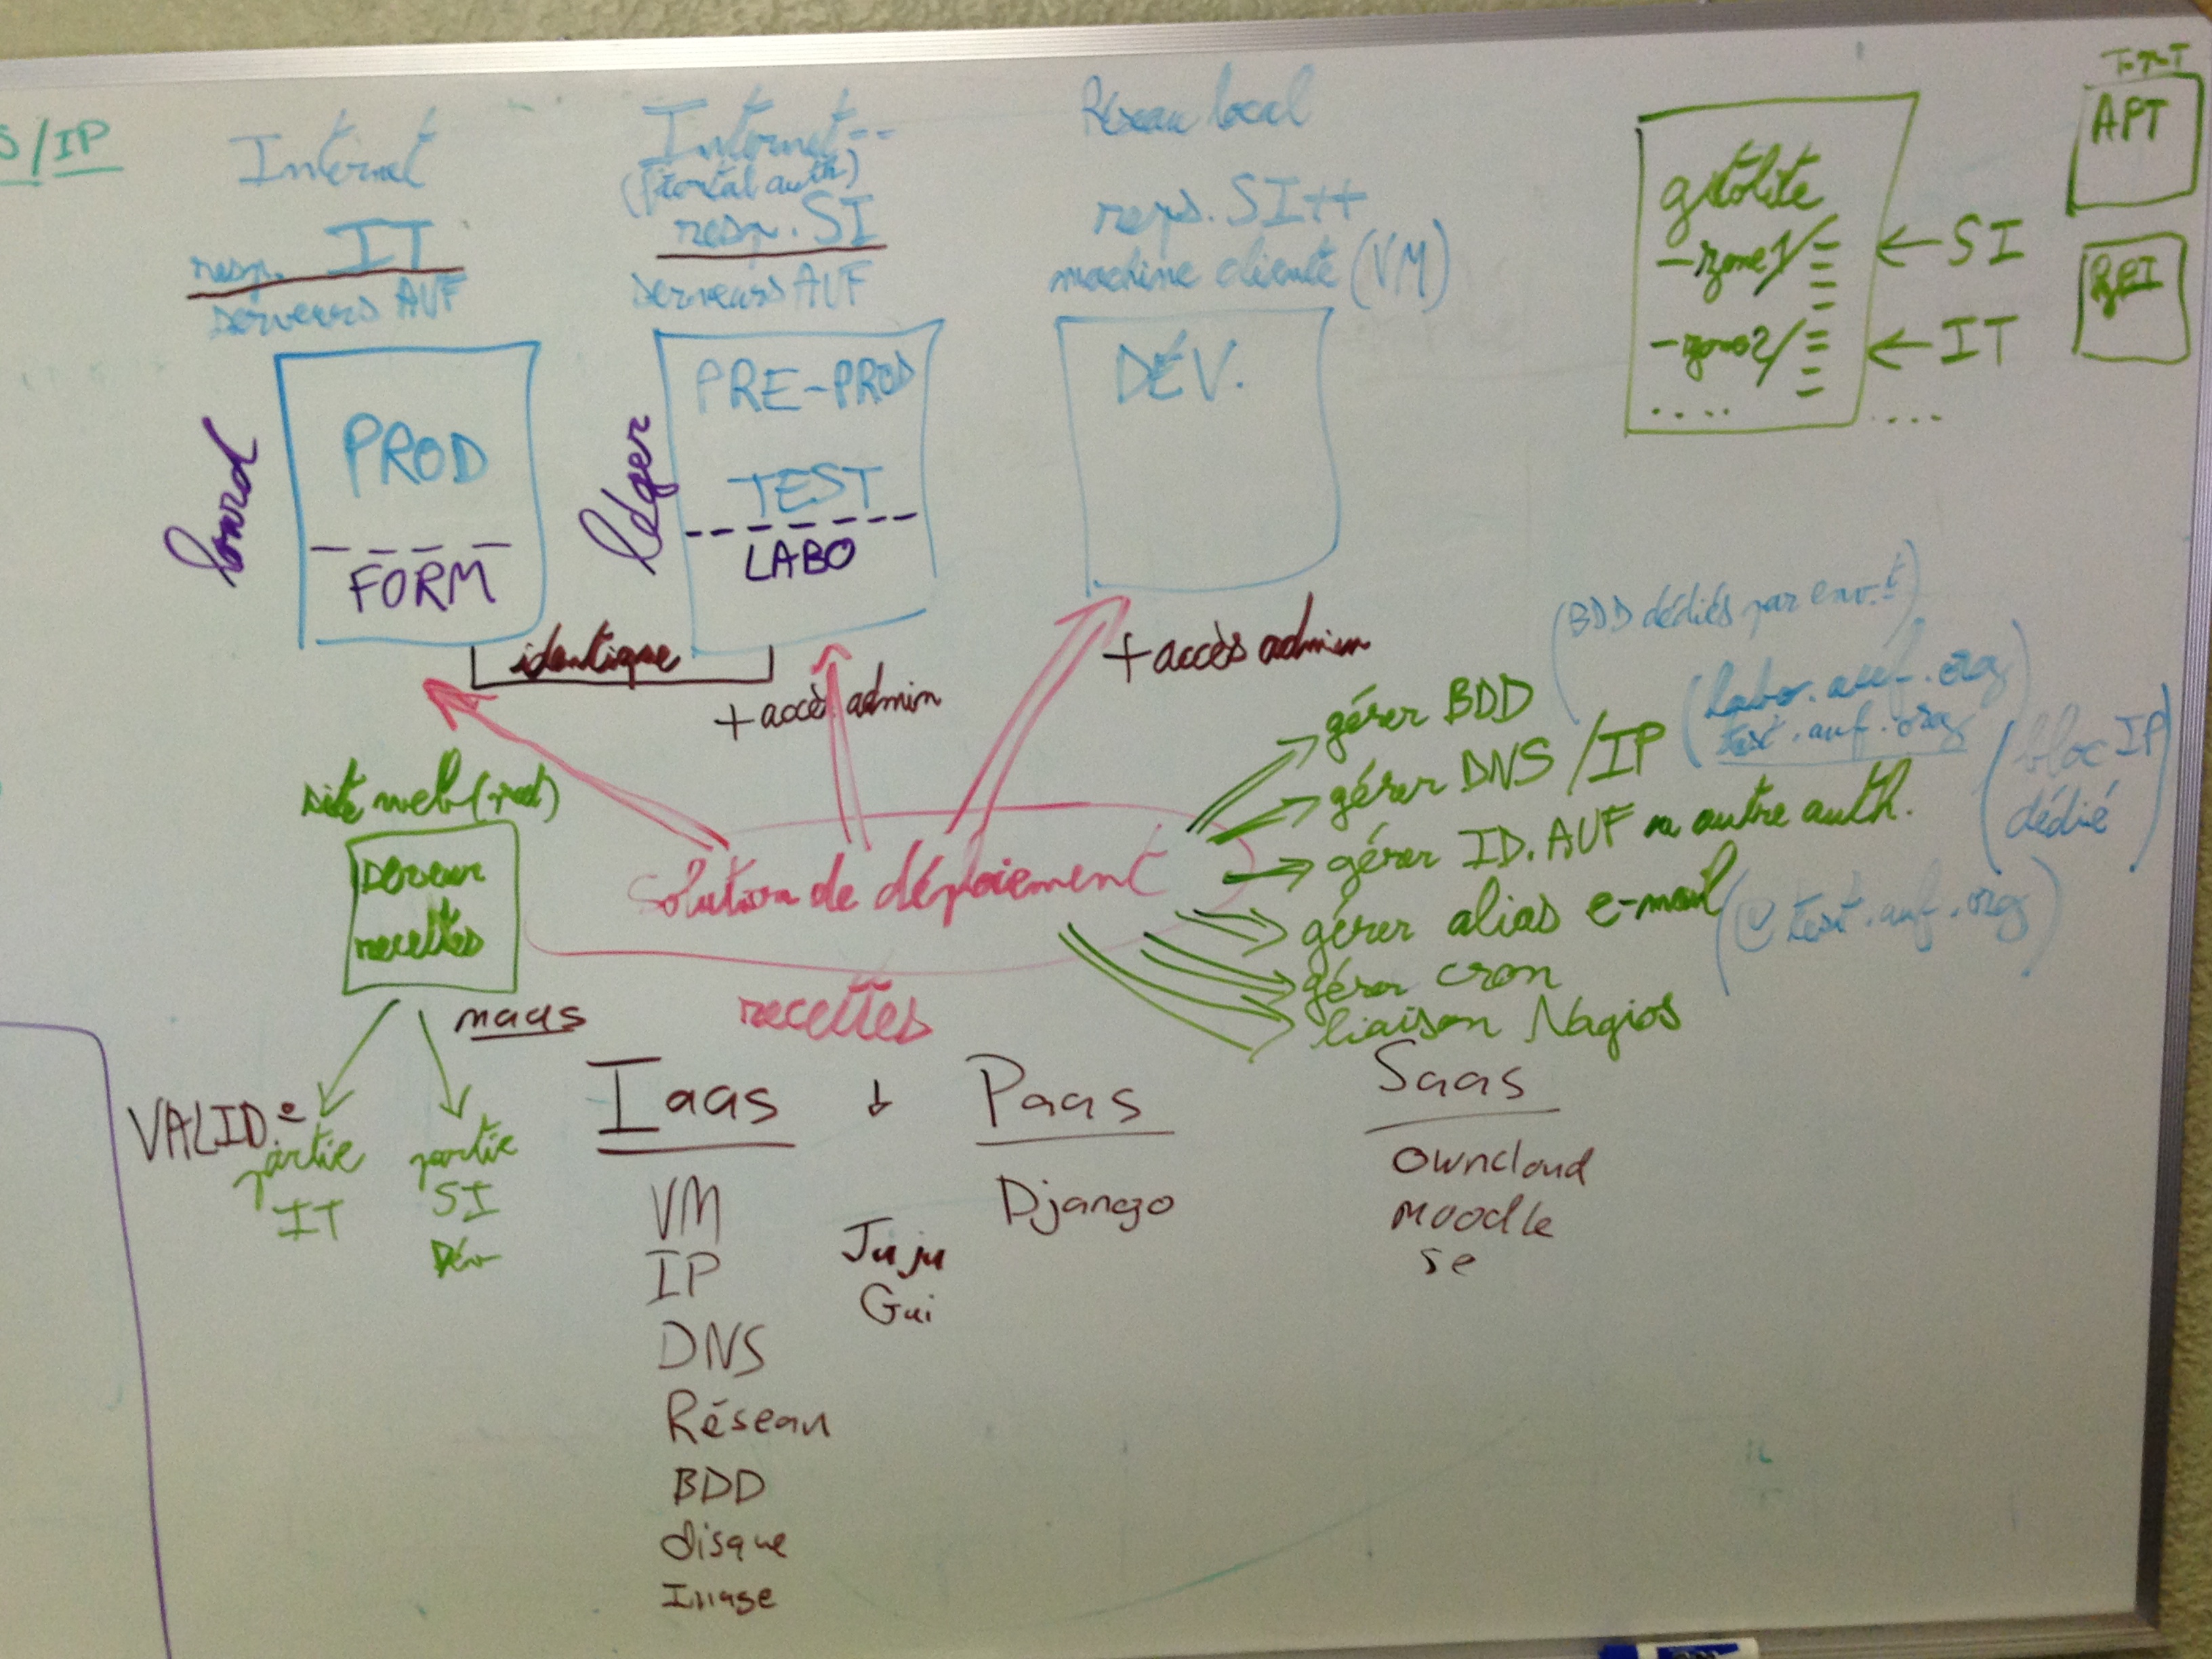 S/IP
Internet
resp. IT
serveurs AUF
PROD
FORM
lourd
Internet--
(portal auth)
resp. SI
serveurs AUF
PRE-PROD
TEST
LABO
léger
Réseau local
reps. SI++
machine cliente (VM)
DÉV.
gitolite
-zone1/
-zone2/
.....
← SI
← IT
....
APT
identique
+accès admin
+accès admin
(BDD dédiés par env.t)
gérer BDD
gérer DNS/IP
(labo.auf.org
test.auf.org)
(bloc IP
dédié)
gérer ID.AUF ou autre auth.
gérer alias e-mail
(@test.auf.org)
gérer cron
liaison Nagios
Solution de déploiement
recettes
site web
serveur
recettes
maas
VALID.
partie
IT
partie
SI
Dév
Iaas
VM
IP
DNS
Réseau
BDD
disque
Image
Juju
Gui
Paas
Django
Saas
owncloud
moodle
se